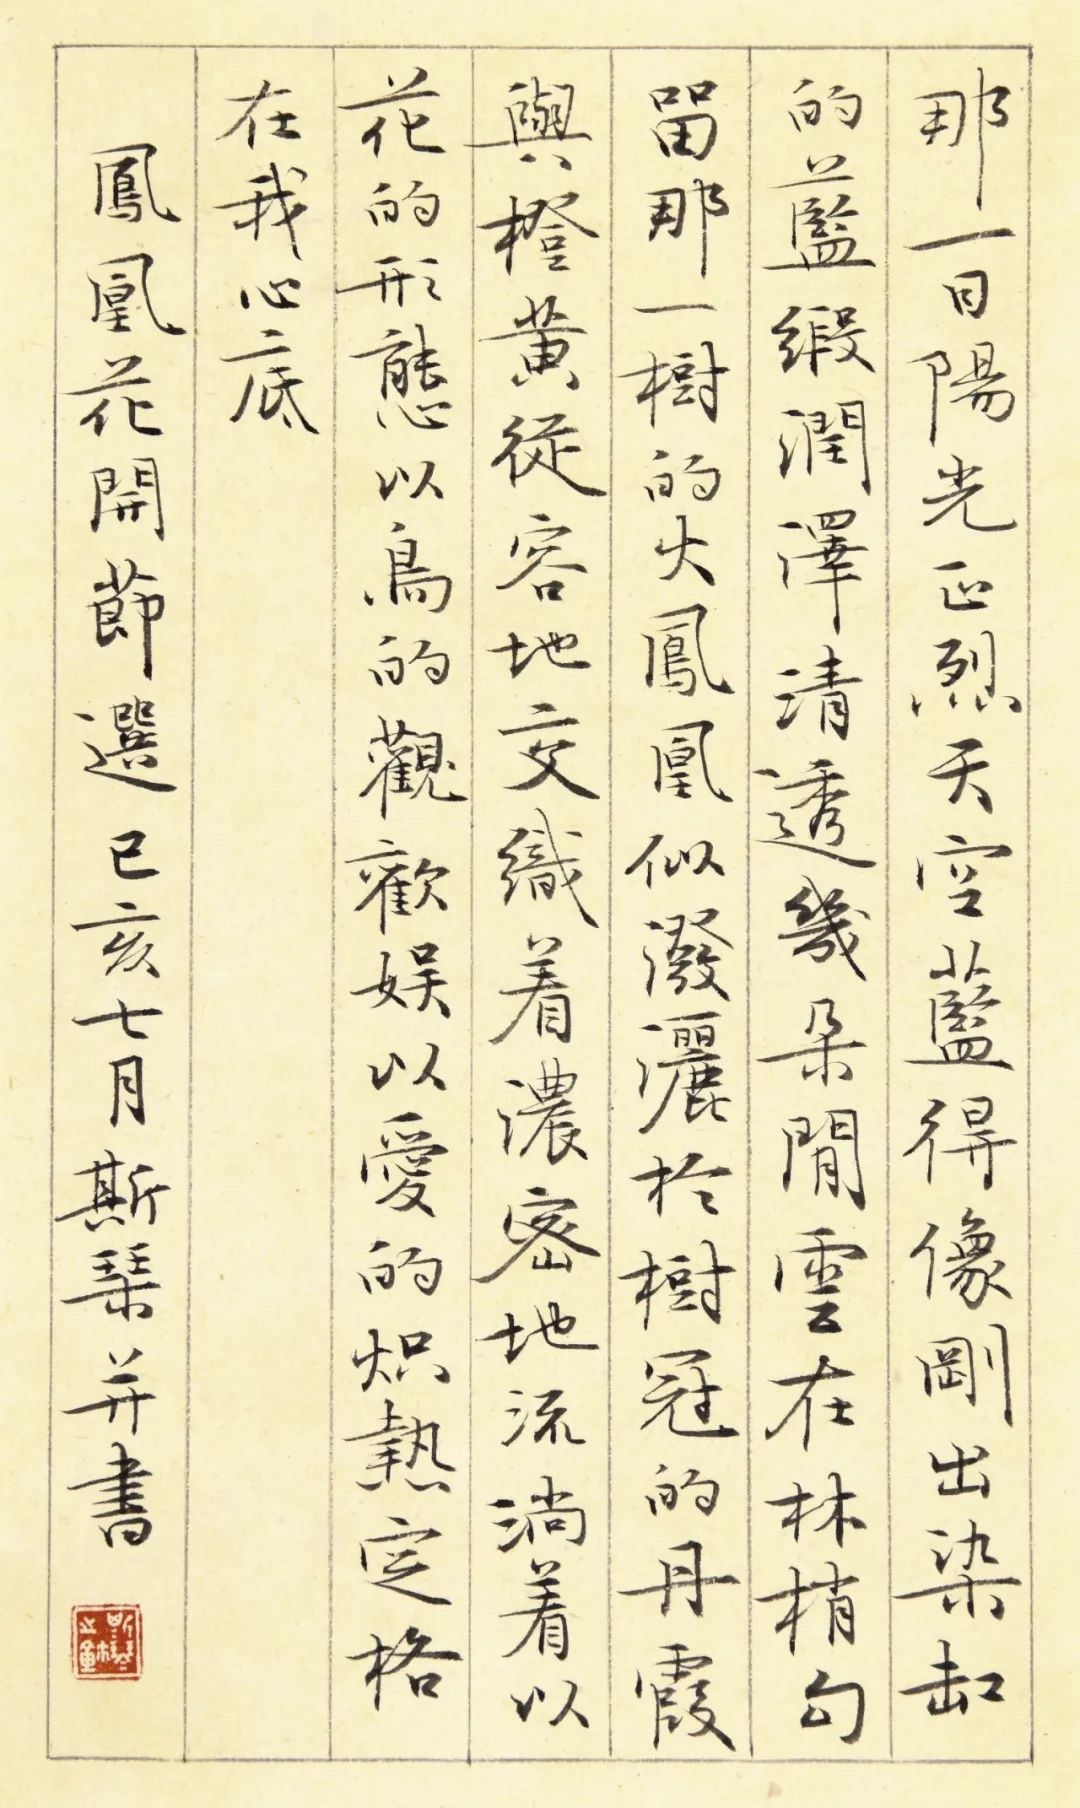 那一日陽光正烈天空藍得像剛出染缸
的藍緞潤澤清透幾朵閒雲在林梢勾
留那一樹的火鳳凰似潑灑於樹冠的丹霞
與橙黄從容地交織着濃密地流淌着以
花的形態以鳥的觀歡娱以愛的炽熱定格
在我心底
鳳凰花開節選己亥七月斯琹并書